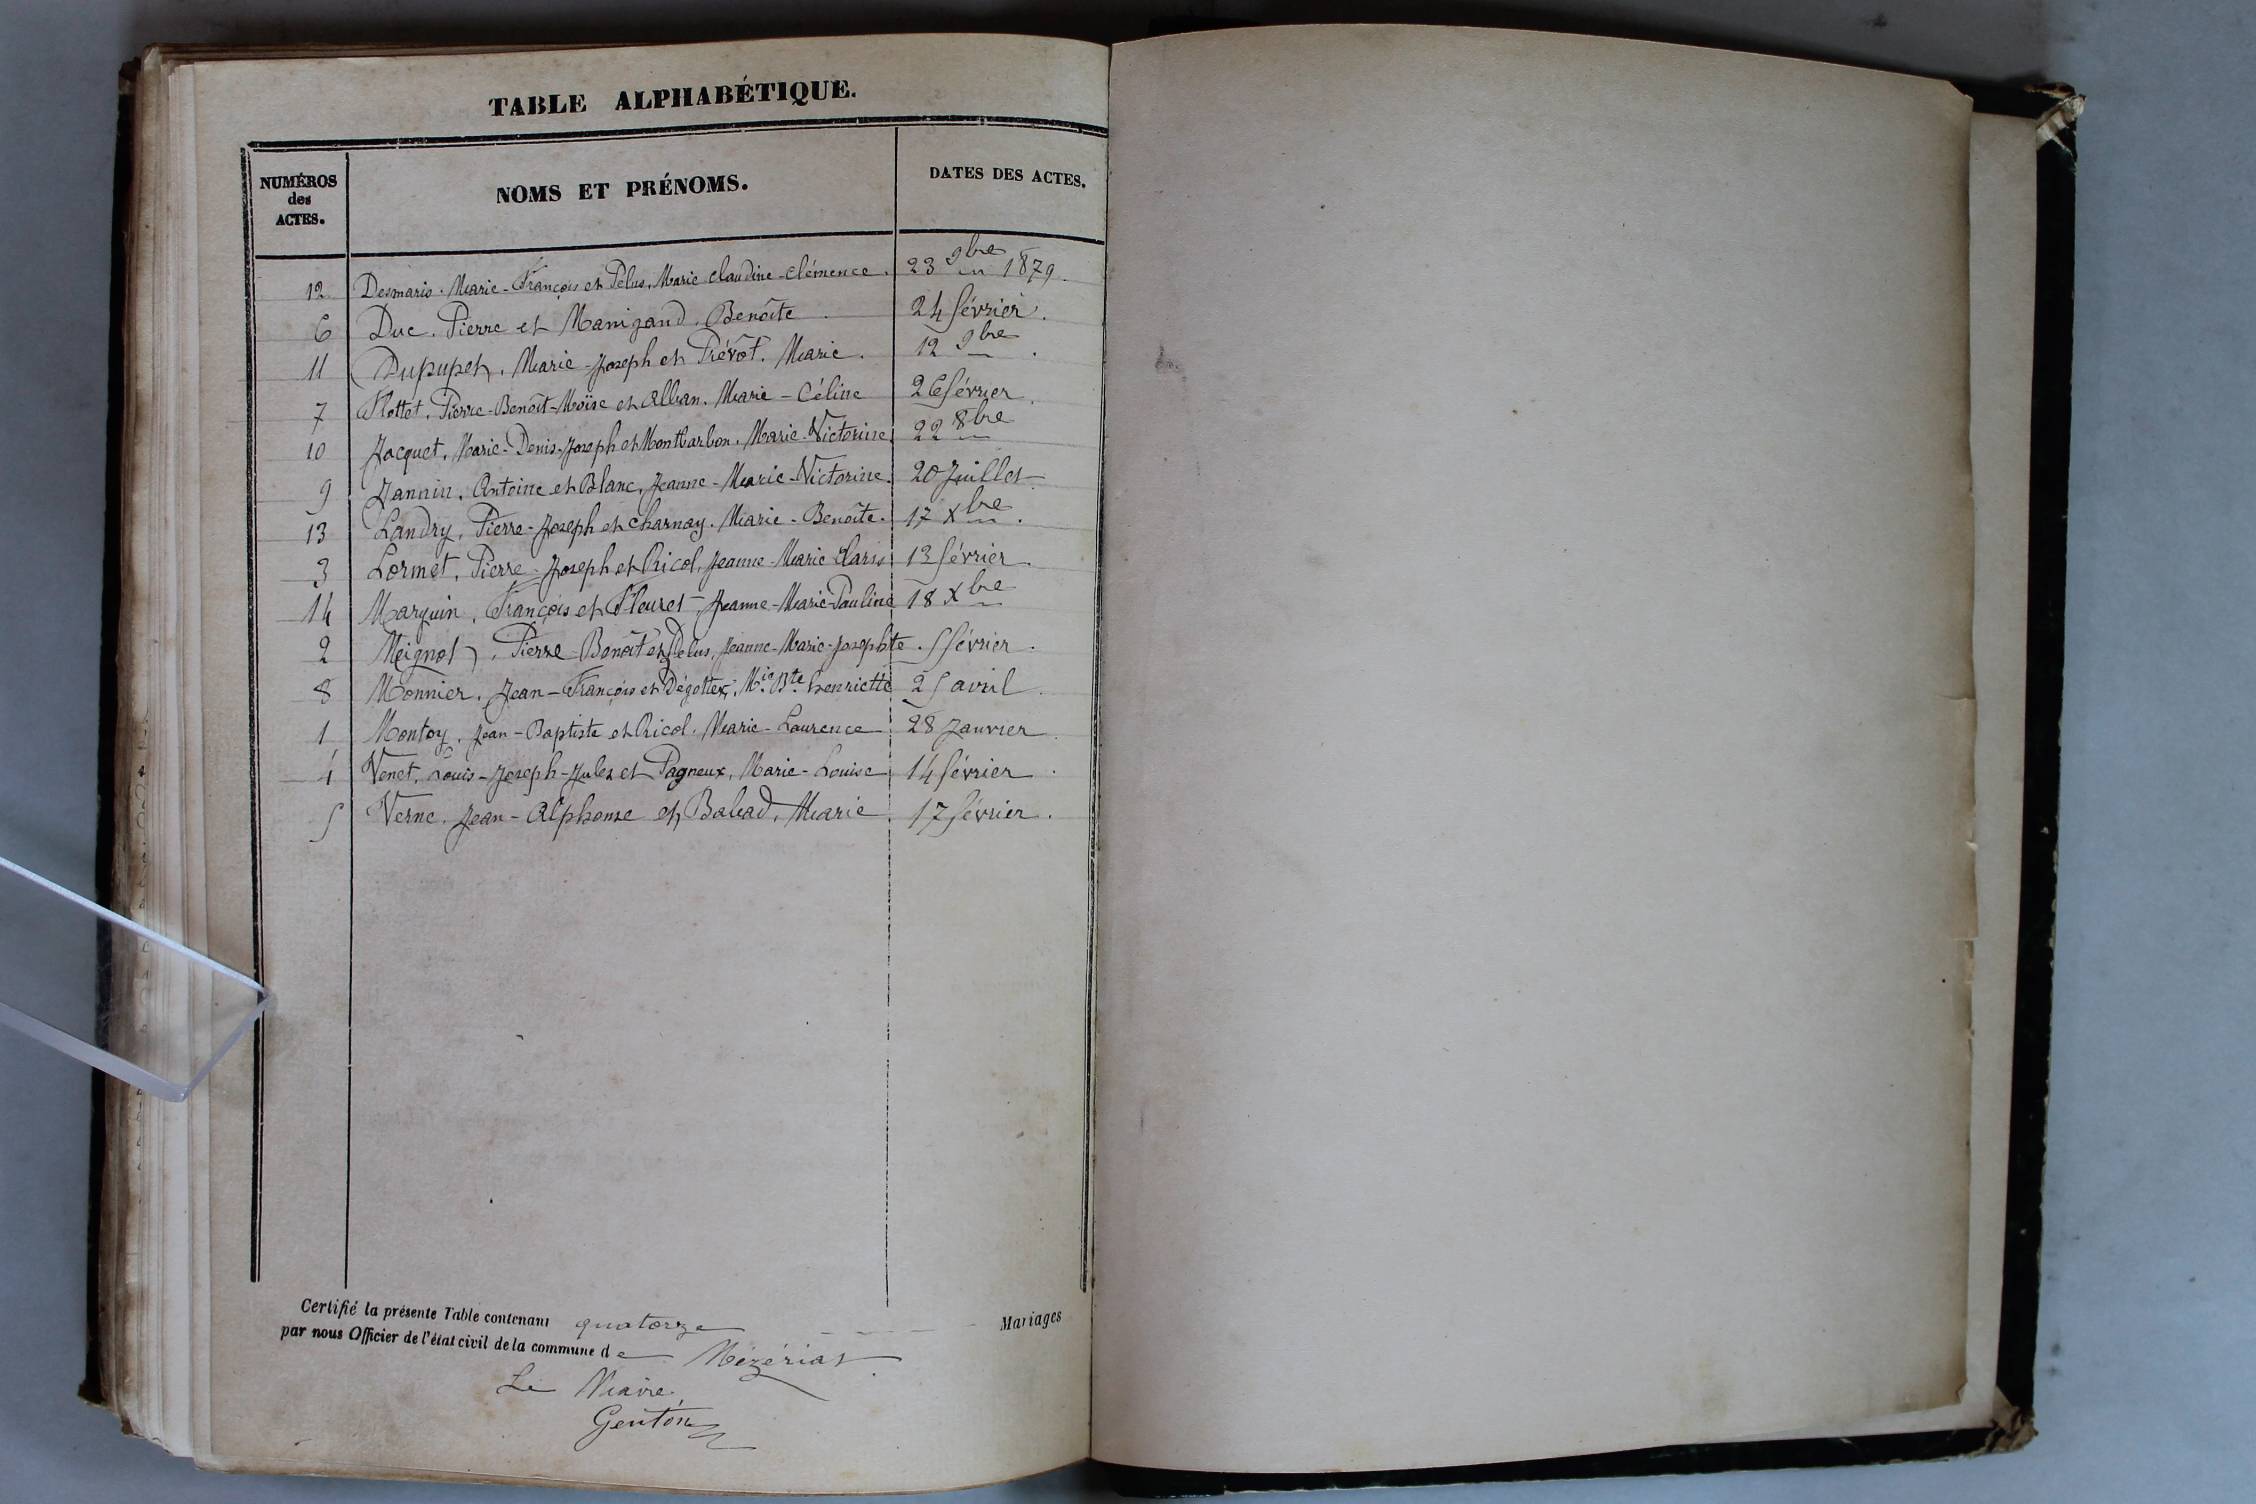 TABLE ALPHABÉTIQUE.
NUMÉROS des ACTES. NOMS ET PRÉNOMS. DATES DES ACTES.
12 Desmaris. Marie-François et Pélus, Marie Claudine-Clémence. 23 9bre 1879.
6 Duc. Pierre et Manigand, Benoîte. 24 février.
11 Dupupet, Marie-Joseph et Prévôt. Marie. 12 9bre.
7 Flottet, Pierre-Benoît-Moïse et Alban. Marie-Céline 26 février.
10 Jacquet, Marie-Denis-Joseph et Montbarbon. Marie-Victorine 22 8bre
9 Jannin, Antoine et Blanc, Jeanne-Marie-Victorine. 20 Juillet.
13 Landry, Pierre-Joseph et Charnay. Marie-Benoîte. 17 Xbre.
3 Lormet, Pierre-Joseph et Ricol, Jeanne-Marie 13 février.
14 Marguin, François et Fleuret, Jeanne-Marie-Pauline 18 Xbre
2 Meignot, Pierre-Benoît et Pelus, Jeanne-Marie-Josephte. 5 février.
8 Monnier, Jean-François et Mie Bte henriette 25 avril.
1 Montoy, Jean-Baptiste et Ricol. Marie-Laurence 28 Janvier.
4 Venet, Louis-Joseph-Jules et Pagneux, Marie-Louise 14 février.
5 Verne. Jean-Alphonse et Babad, Marie. 17 février.
Certifié la présente Table contenant quatorze Mariages
par nous Officier de l'état civil de la commune de Mézériat.
Le Maire
Genton